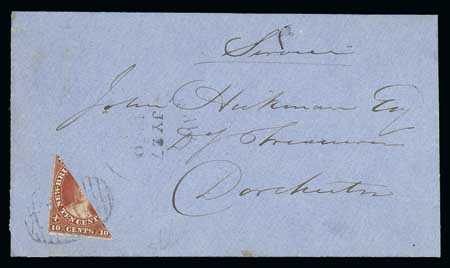 Service
John Hickman Esq
Dy Treasurer
Dorchester
JY 27
NEW BRU
TEN CENT
10 CENTS 10